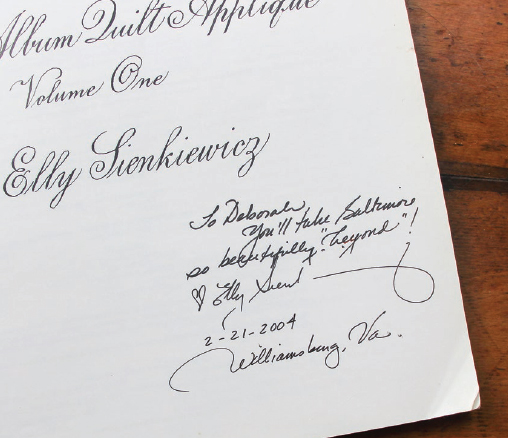 Album Quilt Appliqué
Volume One
Elly Sienkiewicz
To Deborah,
You'll take Baltimore
so beautifully "beyond"!
♡ Elly Sienk
2-21-2004
Williamsburg, Va.